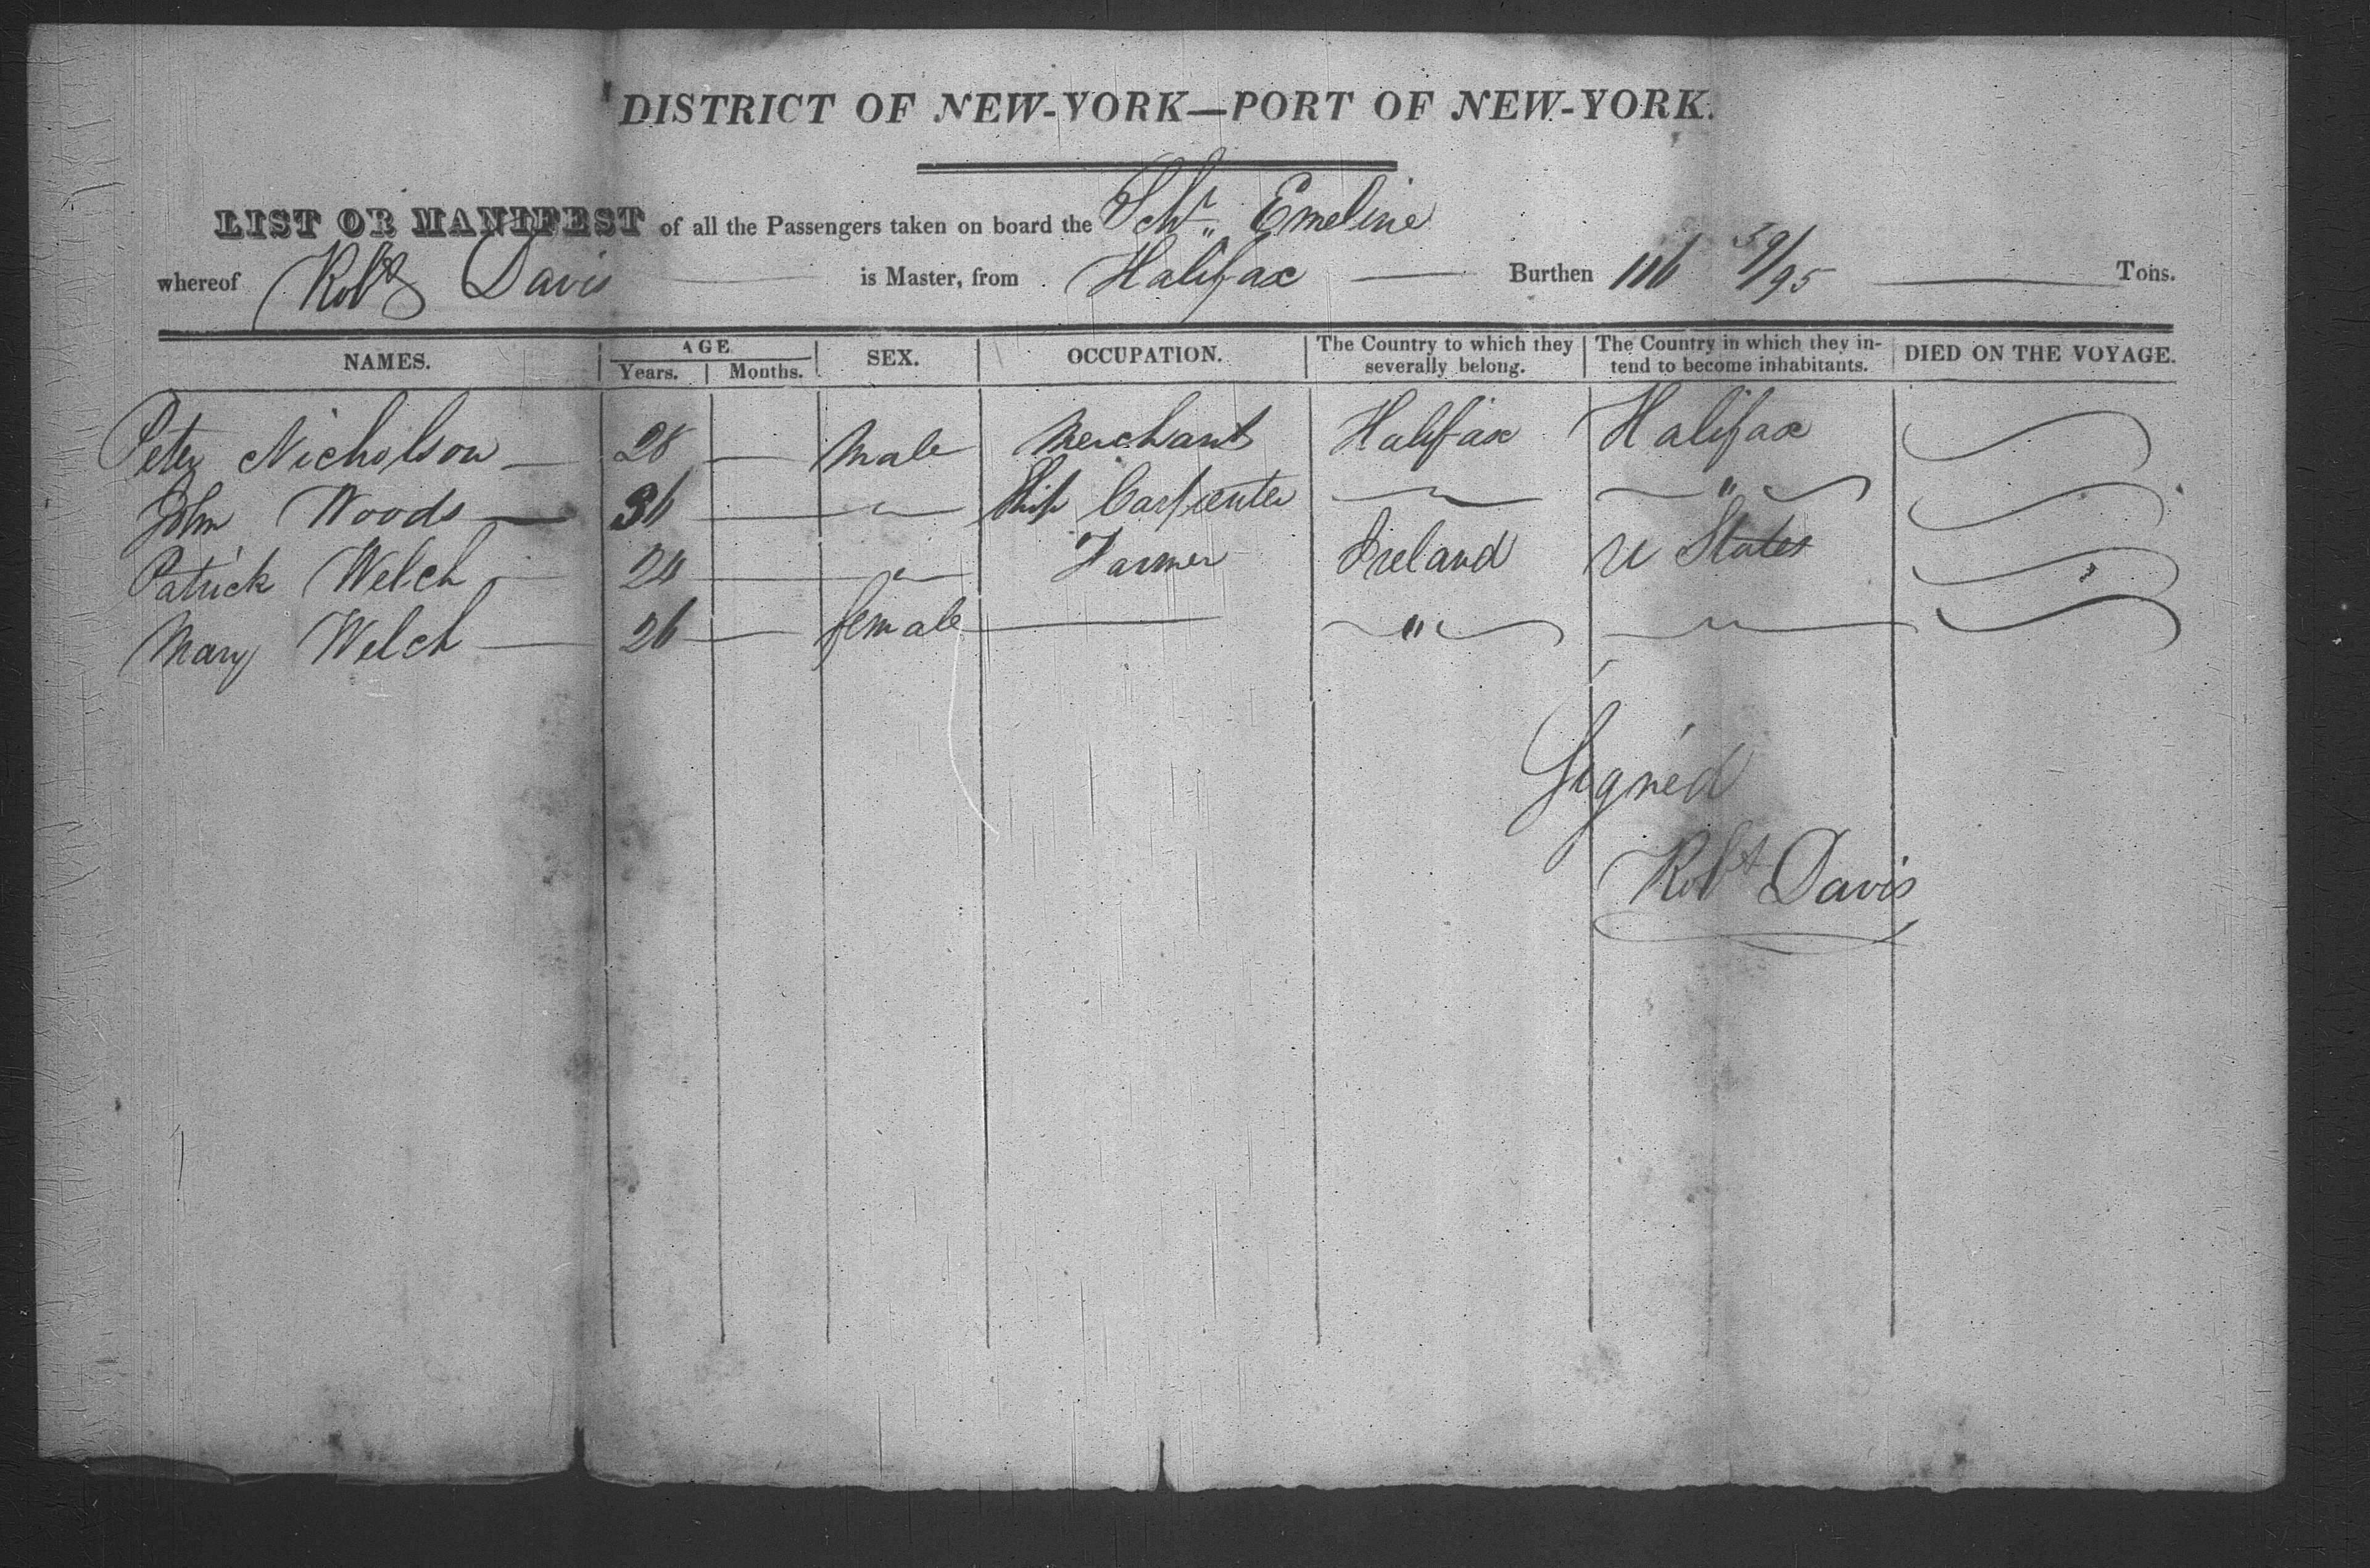 DISTRICT OF NEW-YORK—PORT OF NEW-YORK.
LIST OR MANIFEST of all the Passengers taken on board the Schr Emeline
whereof Robt Davis is Master, from Halifax Burthen 116 59/95 Tons.
NAMES. AGE SEX. OCCUPATION. The Country to which they severally belong. The Country in which they intend to become inhabitants. DIED ON THE VOYAGE.
Years. Months.
Peter Nicholson — 28 — Male Merchant Halifax Halifax
John Woods — 36 — " Ship Carpenter — "
Patrick Welch — 24 — " Farmer Ireland U States
Mary Welch — 26 — female — " "
Signed
Robt Davis